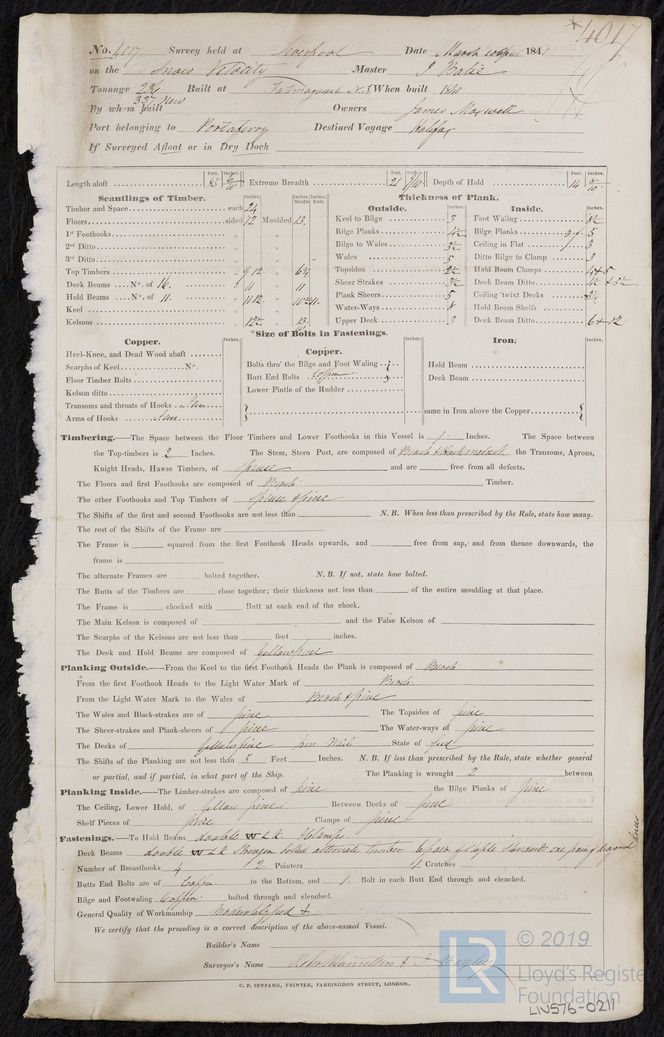 *4017
No. 4017 Survey held at Liverpool Date March 184
on the Snow Velocity Master J
Tonnage Built at N.S. When built 1840
337 New
By whom built Owners James Maxwell
Port belonging to Portaferry Destined Voyage Halifax
If Surveyed Afloat or in Dry Dock
Feet. Inches. Feet. Inches. Feet. Inches.
Length aloft Extreme Breadth 21 Depth of Hold 14
Scantlings of Timber. Thickness of Plank.
Inches. Inches Middle Inches Ends Outside. Inches. Inside. Inches.
Timber and Space each 24 Keel to Bilge 3 Foot Waling 3½
Floors sided 12 Moulded 13 Bilge Planks 4½ Bilge Planks 5
1st Foothooks „ „ Bilge to Wales 3½ Ceiling in Flat 3
2nd Ditto „ „ Wales 5 Ditto Bilge to Clamp 3
3rd Ditto „ „ Topsides 2½ Hold Beam Clamps 4+5
Top Timbers „ 9 12 „ 6½ Sheer Strakes 3½ Deck Beam Ditto
Deck Beams No. of 16. „ 11 „ 11 Plank Sheers 5 Ceiling 'twixt Decks
Hold Beams No. of 11. „ 11 12 „ Water-Ways 8 Hold Beam Shelfs
Keel „ „ Upper Deck 3 Deck Beam Ditto 6+12
Kelsons „ 12 „ 13
"Size of Bolts in Fastenings.
Copper. Inches. Copper. Inches. Iron. Inches.
Heel-Knee, and Dead Wood abaft
Scarphs of Keel No. Bolts thro' the Bilge and Foot Waling Hold Beam
Floor Timber Bolts Butt End Bolts Copper Deck Beam
Kelson ditto Lower Pintle of the Rudder
Transoms and throats of Hooks
Arms of Hooks same in Iron above the Copper
Timbering.—The Space between the Floor Timbers and Lower Foothooks in this Vessel is 1 Inches. The Space between
the Top-timbers is 2 Inches. The Stem, Stern Post, are composed of Birch & Hackmatack the Transoms, Aprons,
Knight Heads, Hawse Timbers, of Spruce and are free from all defects.
The Floors and first Foothooks are composed of Birch Timber.
The other Foothooks and Top Timbers of Spruce & pine
The Shifts of the first and second Foothooks are not less than N. B. When less than prescribed by the Rule, state how many.
The rest of the Shifts of the Frame are
The Frame is squared from the first Foothook Heads upwards, and free from sap, and from thence downwards, the
frame is
The alternate Frames are bolted together. N. B. If not, state how bolted.
The Butts of the Timbers are close together; their thickness not less than of the entire moulding at that place.
The Frame is chocked with Butt at each end of the chock.
The Main Kelson is composed of and the False Kelson of
The Scarphs of the Kelsons are not less than feet inches.
The Deck and Hold Beams are composed of Yellow pine
Planking Outside.—From the Keel to the first Foothook Heads the Plank is composed of Birch
From the first Foothook Heads to the Light Water Mark of Birch
From the Light Water Mark to the Wales of Birch & pine
The Wales and Black-strakes are of pine The Topsides of pine
The Sheer-strakes and Plank-sheers of pine The Water-ways of pine
The Decks of Yellow pine Iron Nails State of good
The Shifts of the Planking are not less than 5 Feet Inches. N. B. If less than prescribed by the Rule, state whether general
or partial, and if partial, in what part of the Ship. The Planking is wrought 2 between
Planking Inside.—The Limber-strakes are composed of pine the Bilge Planks of pine
The Ceiling, Lower Hold, of Yellow pine Between Decks of pine
Shelf Pieces of pine Clamps of pine
Fastenings.—To Hold Beams double W L K
Deck Beams double W L K
Number of Breasthooks 4 2 Pointers 4 Crutches
Butts End Bolts are of Copper in the Bottom, and 1 Bolt in each Butt End through and clenched.
Bilge and Footwaling Copper bolted through and clenched.
General Quality of Workmanship
We certify that the preceding is a correct description of the above-named Vessel.
Builder's Name
Surveyor's Name
C. F. SEYFANG, PRINTER, FARRINGDON STREET, LONDON.
LR © 2019
Lloyd's Register
Foundation
LIV576-0211